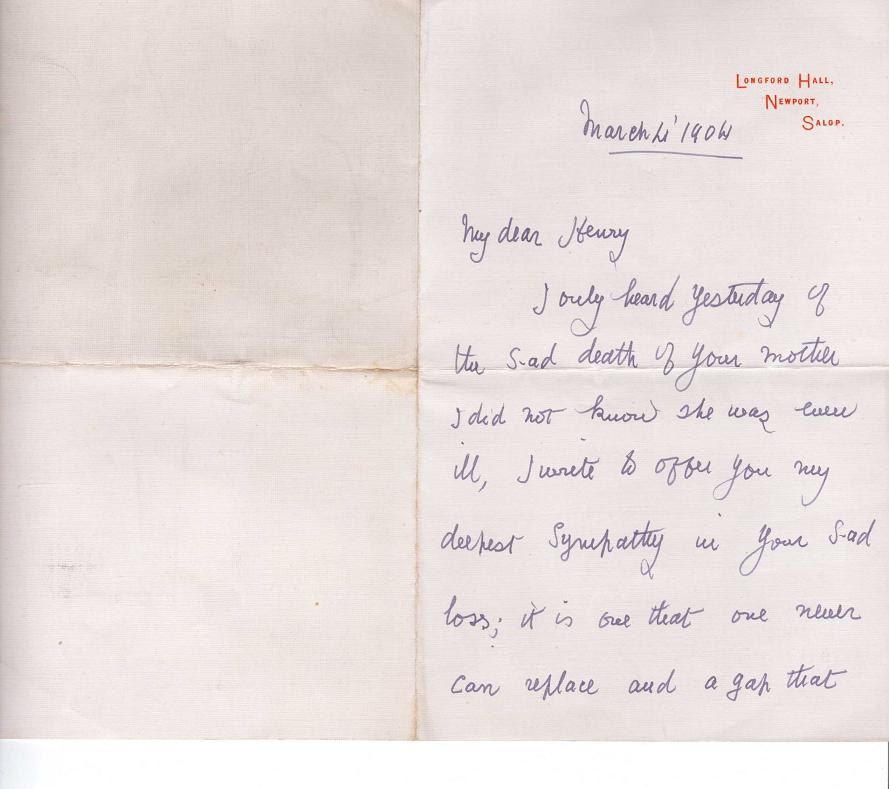 LONGFORD HALL,
NEWPORT,
SALOP.
March 4' 1904
My dear Henry
I only heard yesterday of
the sad death of your mother
I did not know she was even
ill, I write to offer you my
deepest sympathy in your sad
loss; it is one that one never
can replace and a gap that